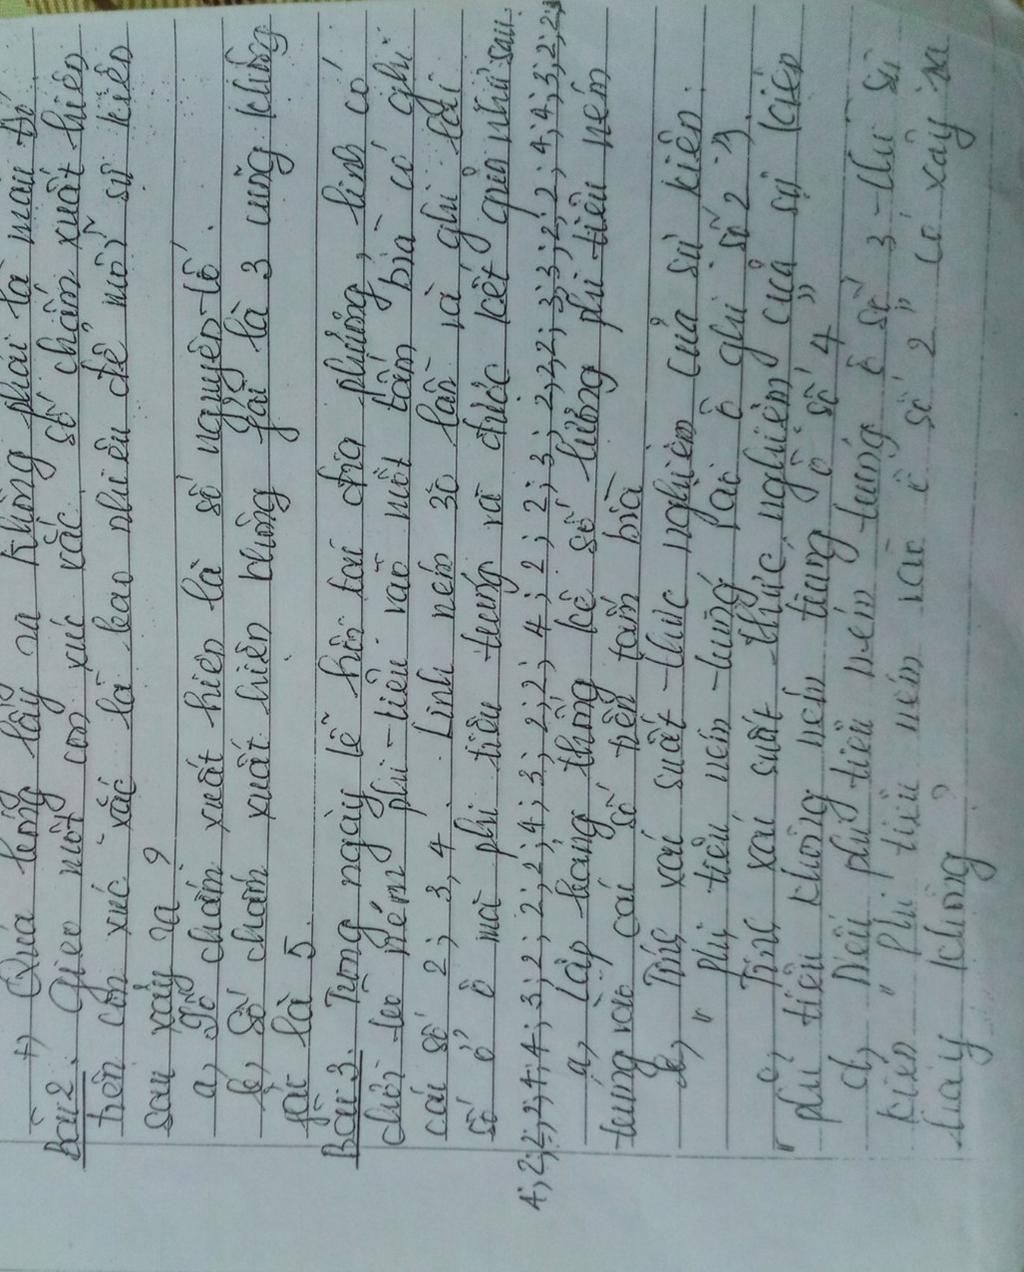 +) Quả bóng lấy ra không phải là màu đỏ
Bài 2. Gieo một con xúc xắc số chấm xuất hiện
trên con xúc xắc là bao nhiêu để mỗi sự kiện
sau xảy ra ?
a, Số chấm xuất hiện là số nguyên tố.
b, Số chấm xuất hiện không phải là 3 cũng không
phải là 5.
Bài 3. Trong ngày lễ hội tại địa phương, Linh có
chơi trò ném phi tiêu vào một tấm bìa có ghi
cái số 2; 3, 4. Linh ném 30 lần và ghi lại
số ở ô mà phi tiêu trúng và được kết quả như sau:
4; 2; 2; 2; 4; 4; 3; 2; 2; 2; 4; 3; 2; 2; 4; 2; 2; 3; 2; 2; 3; 3; 2; 2; 4; 4; 3; 2; 2;
a, Lập bảng thống kê số lượng phi tiêu ném
trúng vào cái số trên tấm bìa
b, Tính xái suất thực nghiệm của sự kiện
" phi tiêu ném trúng vào ô ghi số 2 ".
c, Tính xái suất thực nghiệm của sự kiện
phi tiêu không ném trúng ô số 4 "
d, Nếu phi tiêu ném trúng ô số 3 thì sự
kiện " phi tiêu ném vào ô số 2 " có xảy ra
hay không ?